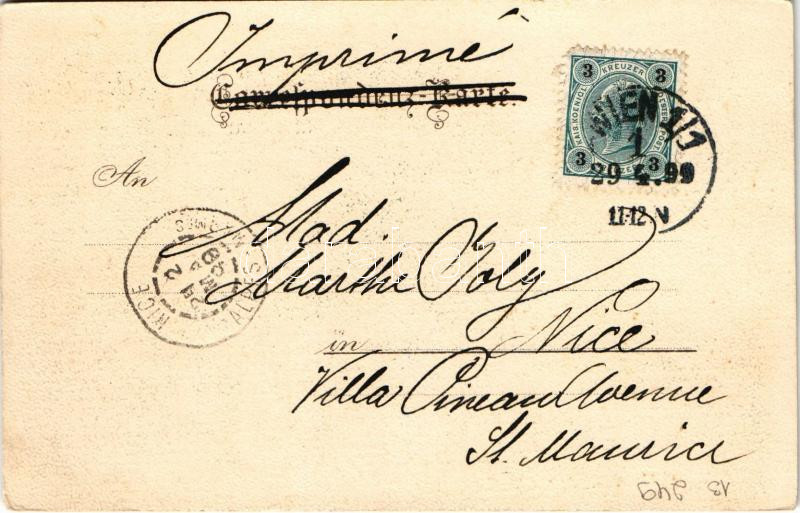 Imprimé
Correspondenz-Karte.
3 KREUZER 3
3 3
WIEN 1/1
1
29 4.99
11-12 V
An
Mad.
Marthe Joly
in Nice
Villa Pineau Avenue
St. Maurice
NICE
ALPES MARMES
2
249 13